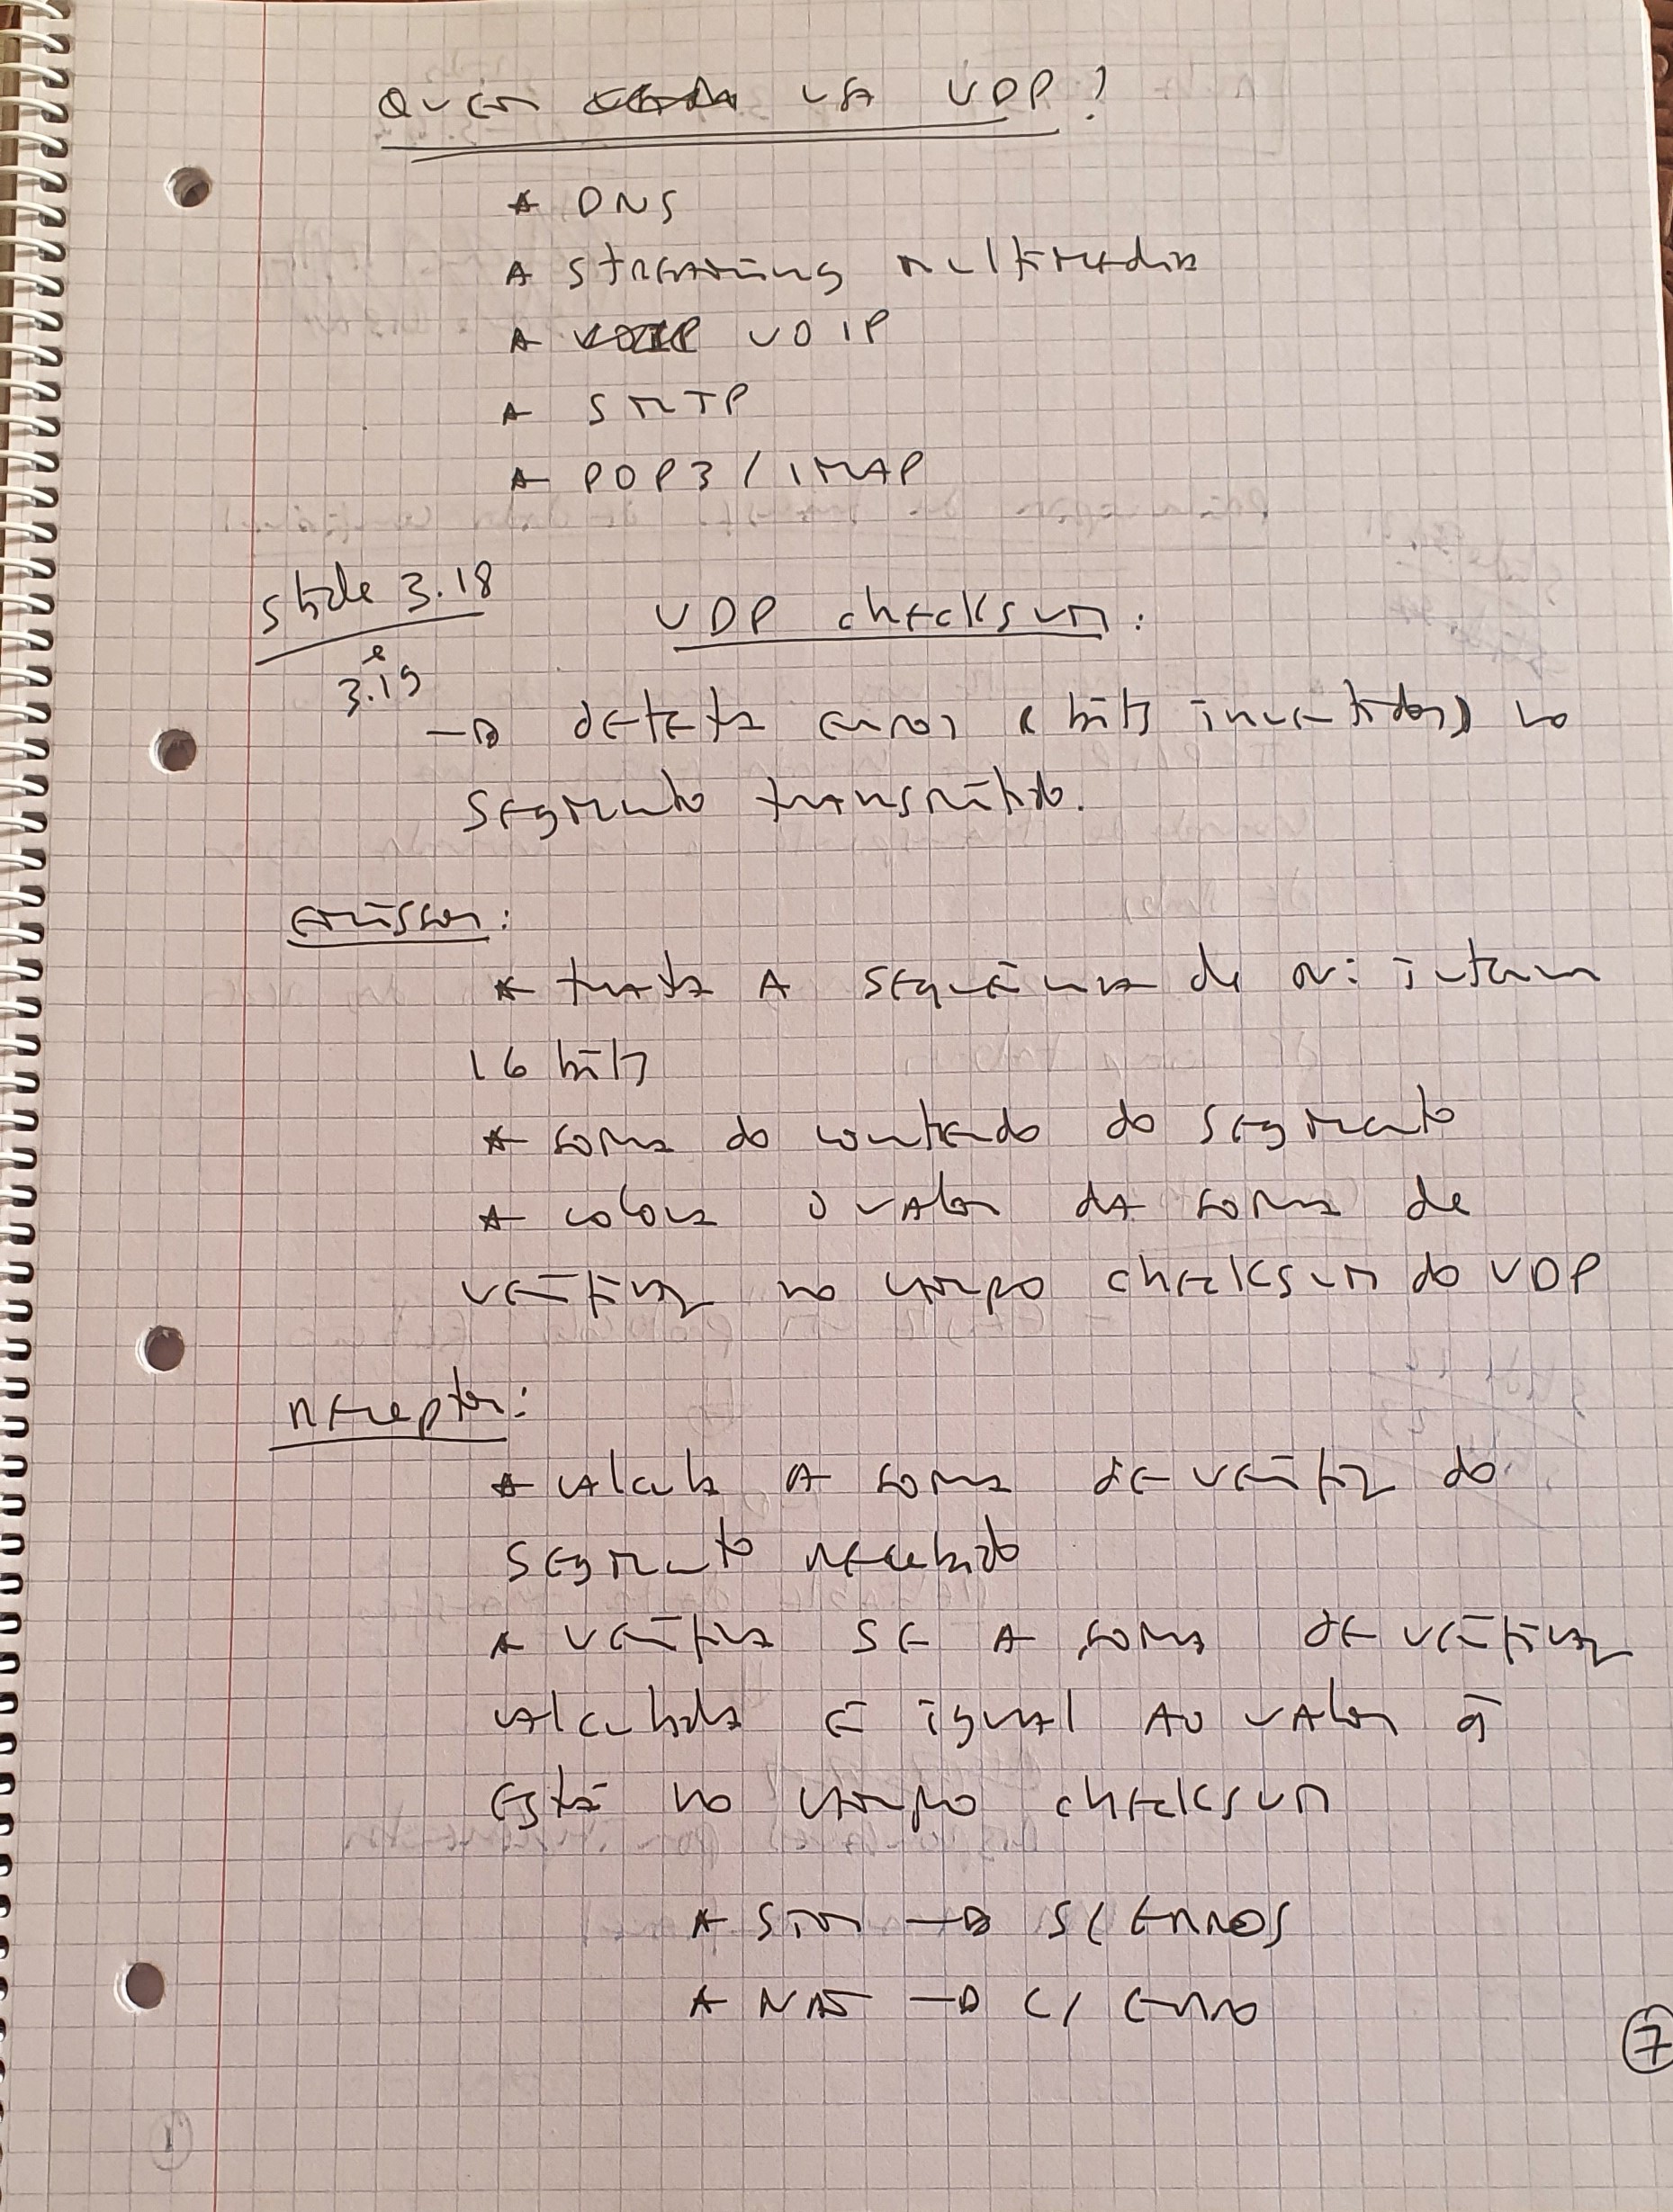 QUEM USA UDP?
* DNS
* STREAMING multimedia
* VOIP
* SMTP
* POP3 / IMAP
slide 3.18
e
3.19
UDP checksum:
→ deteta erros (bits invertidos) no
segmento transmitido.
emissor:
* trata A sequência de nº inteiros
16 bits
* soma do conteudo do segmento
* coloca o valor da soma de
verificaç no campo checksum do UDP
receptor:
* calcula A soma de verificaç do
segmento recebido
* verifica se A soma de verificaç
calculada é igual AO valor q̃
está no campo checksum
* SIM → S/ ERROS
* NÃO → C/ erro
7